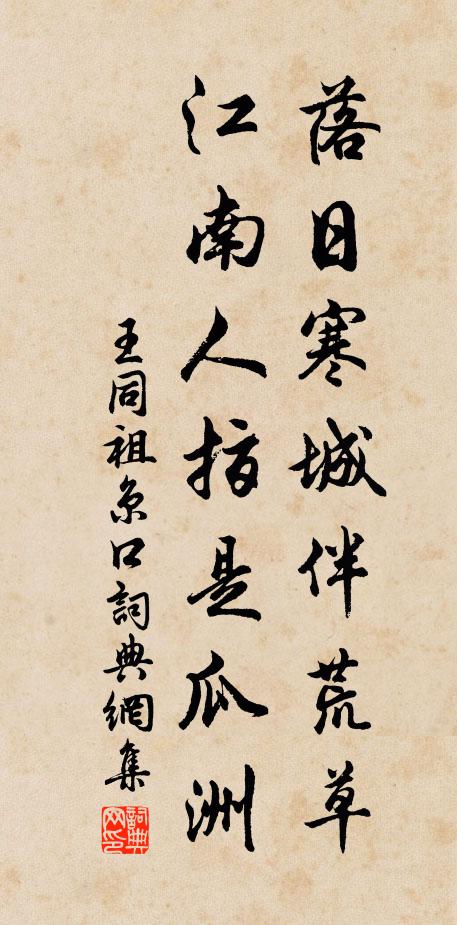 落日寒城伴荒草
江南人指是瓜洲
王同祖京口詞典網集
詞典網印